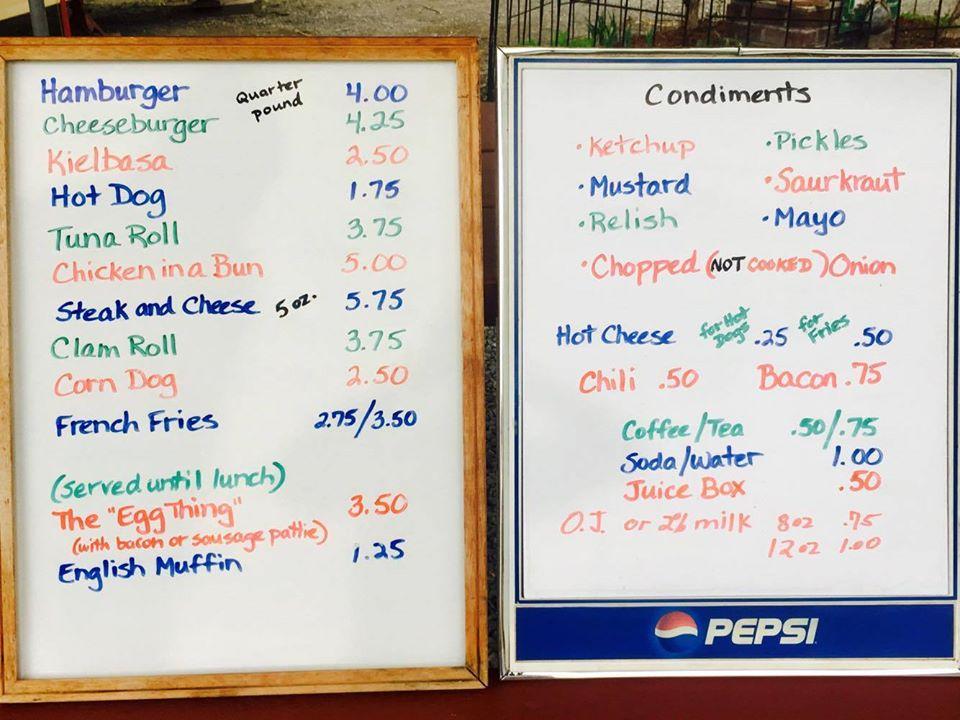 Hamburger Quarter pound 4.00
Cheeseburger 4.25
Kielbasa 2.50
Hot Dog 1.75
Tuna Roll 3.75
Chicken in a Bun 5.00
Steak and Cheese 5 oz. 5.75
Clam Roll 3.75
Corn Dog 2.50
French Fries 2.75/3.50
(served until lunch)
The "Egg Thing" 3.50
(with bacon or sausage pattie)
English Muffin 1.25
Condiments
• Ketchup • Pickles
• Mustard • Saurkraut
• Relish • Mayo
• Chopped (NOT COOKED) Onion
Hot Cheese for Hot Dogs .25 for Fries .50
Chili .50 Bacon .75
Coffee/Tea .50/.75
Soda/water 1.00
Juice Box .50
O.J. or 2% milk 8oz .75
12 oz 1.00
PEPSI